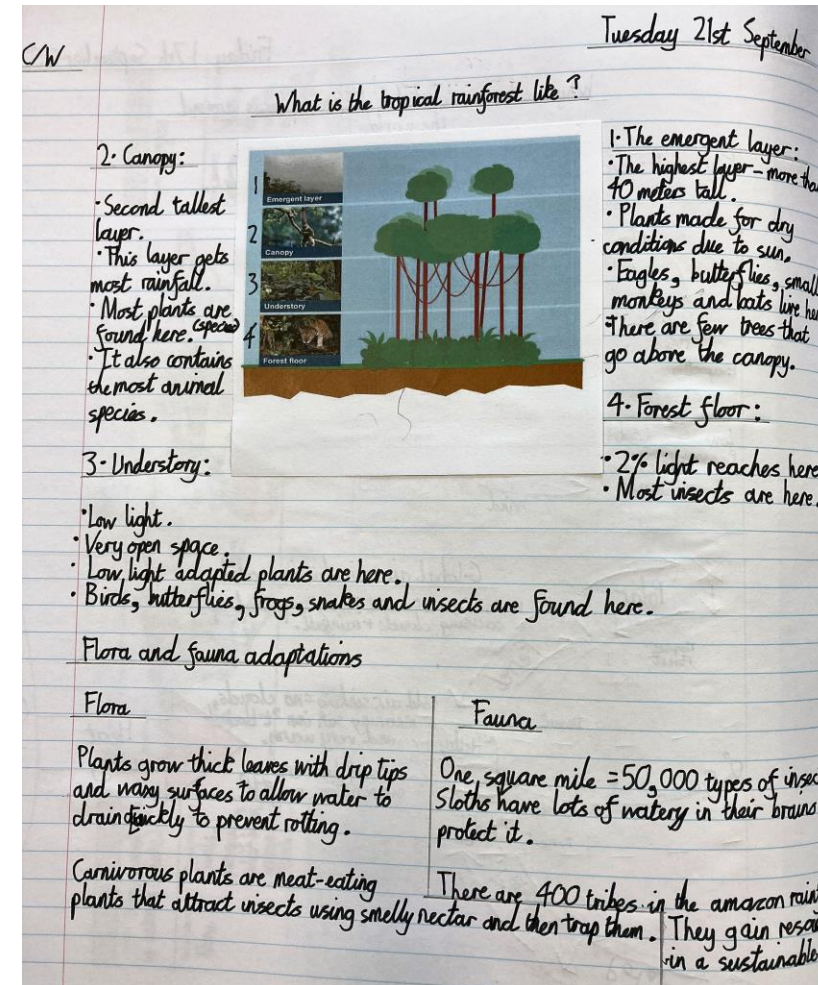 C/W
Tuesday 21st September
What is the tropical rainforest like?
2. Canopy:
• Second tallest
layer.
• This layer gets
most rainfall.
• Most plants are
found here. (species)
• It also contains
the most animal
species.
1
Emergent layer
2
Canopy
3
Understory
4
Forest floor
1. The emergent layer:
• The highest layer - more tha
40 meters tall.
• Plants made for dry
conditions due to sun.
• Eagles, butterflies, small
monkeys and bats live he
There are few trees that
go above the canopy.
4. Forest floor:
• 2% light reaches here
• Most insects are here.
3. Understory:
• Low light.
• Very open space.
• Low light adapted plants are here.
• Birds, butterflies, frogs, snakes and insects are found here.
Flora and fauna adaptations
Flora
Plants grow thick leaves with drip tips
and waxy surfaces to allow water to
drain quickly to prevent rotting.
Carnivorous plants are meat-eating
plants that attract insects using smelly nectar and then trap them.
Fauna
One square mile = 50,000 types of insec
Sloths have lots of watery in their brains
protect it.
There are 400 tribes in the amazon rain
They gain resou
in a sustainable